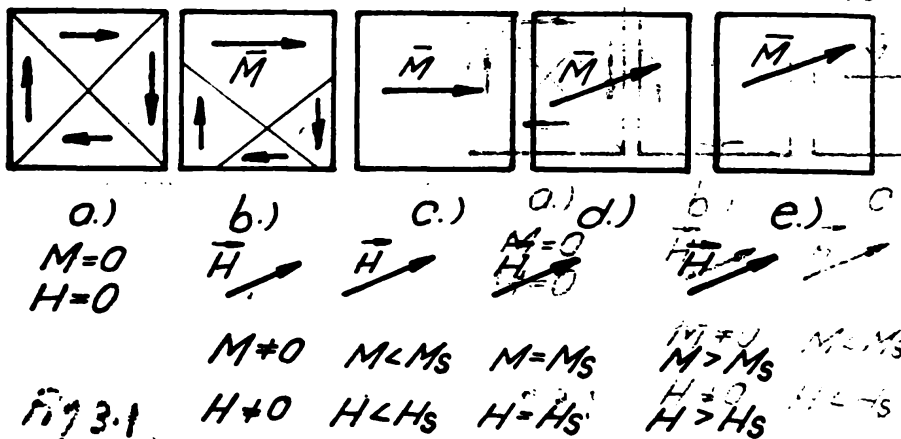 M̄ M̄ M̄ M̄
a.) b.) c.) d.) e.)
M=0 H⃗ H⃗ H H⃗
H=0
M≠0 M<Ms M=Ms M>Ms
Fig 3.1 H≠0 H<Hs H=Hs H>Hs